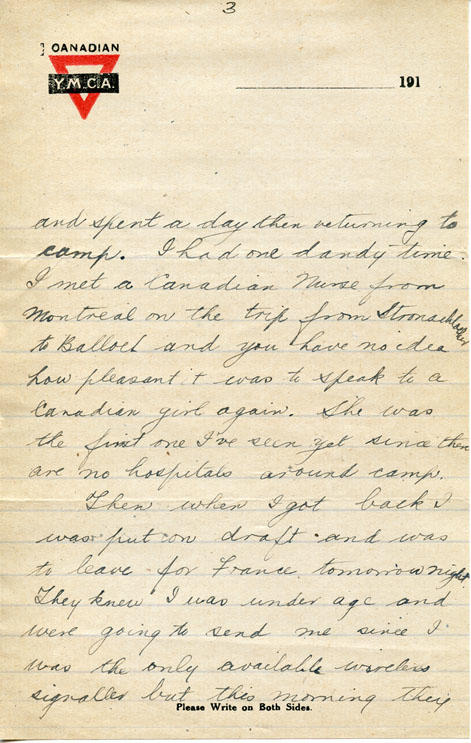 3
CANADIAN
Y.M.C.A.
191
and spent a day then returning to
camp. I had one dandy time.
I met a Canadian Nurse from
Montreal on the trip from Stronachlacher
to Balloch and you have no idea
how pleasant it was to speak to a
Canadian girl again. She was
the first one I've seen yet since there
are no hospitals around camp.
Then when I got back I
was put on draft and was
to leave for France tomorrow night
They knew I was under age and
were going to send me since I
was the only available wireless
signaller but this morning they
Please Write on Both Sides.